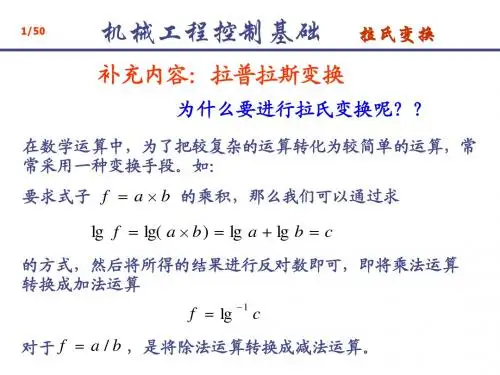 1/50 机械工程控制基础 拉氏变换
补充内容：拉普拉斯变换
为什么要进行拉氏变换呢？？
在数学运算中，为了把较复杂的运算转化为较简单的运算，常
常采用一种变换手段。如：
要求式子 f = a × b 的乘积，那么我们可以通过求
lg f = lg( a × b ) = lg a + lg b = c
的方式，然后将所得的结果进行反对数即可，即将乘法运算
转换成加法运算
f = lg⁻¹ c
对于 f = a / b ，是将除法运算转换成减法运算。